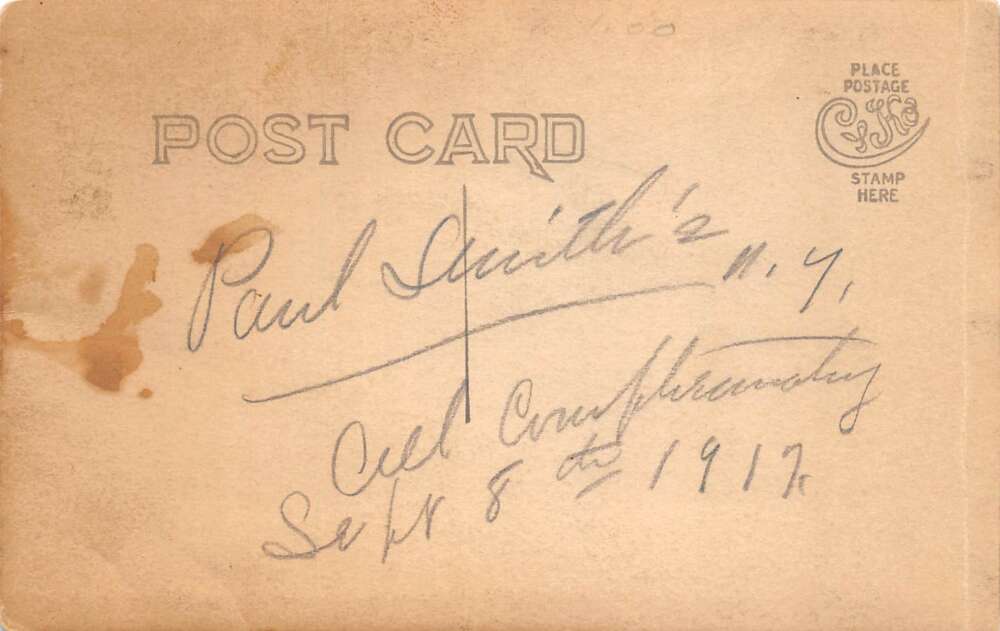 PLACE
POSTAGE
CYKO
STAMP
HERE
POST CARD
Paul Smith's
N.Y.
All Complimentary
Sept 8th 1917